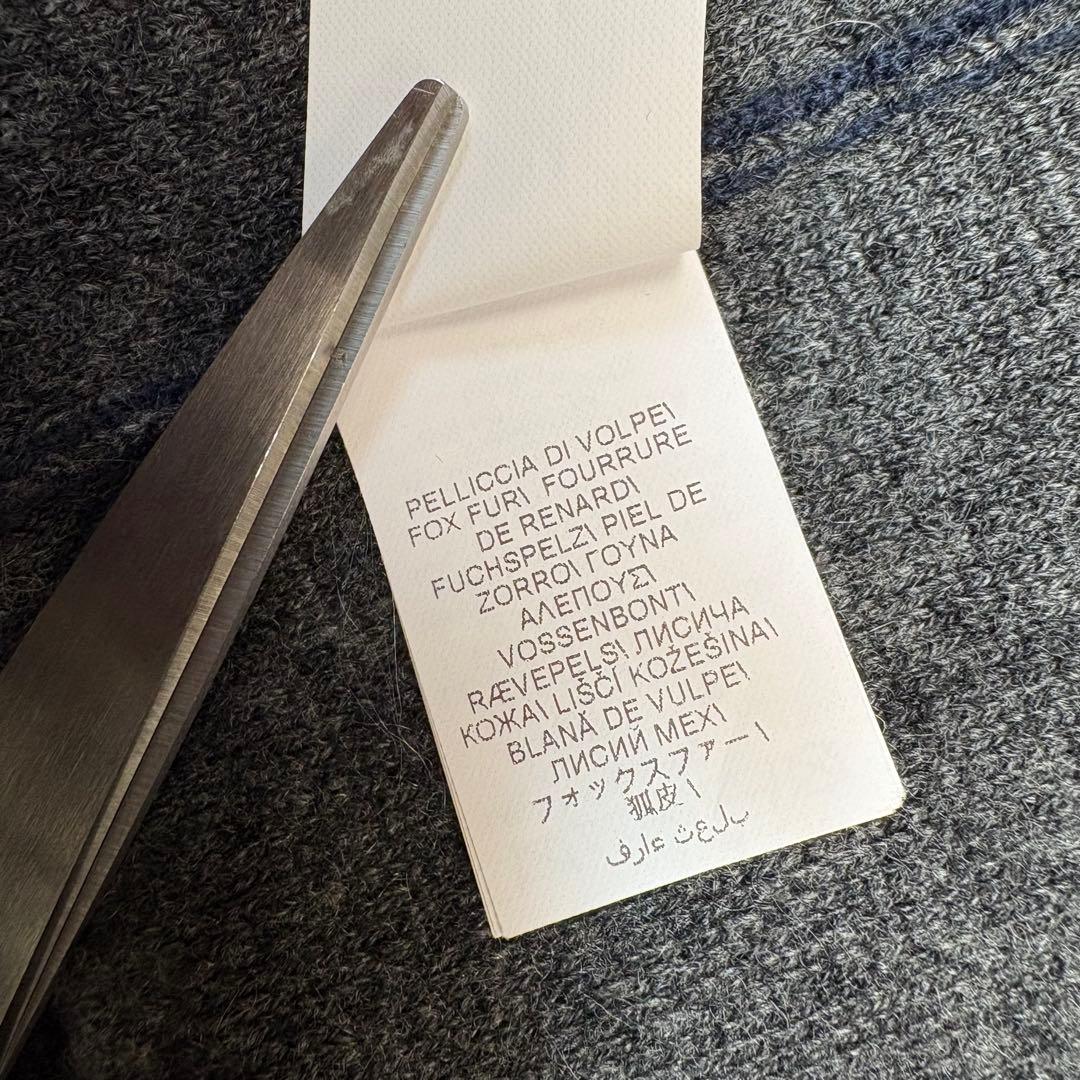 PELLICCIA DI VOLPE\
FOX FUR\ FOURRURE
DE RENARD\
FUCHSPELZ\ PIEL DE
ZORRO\ ΓΟΥΝΑ
ΑΛΕΠΟΥΣ\
VOSSENBONT\
RÆVEPELS\ ЛИСИЧА
КОЖА\ LIŠČÍ KOŽEŠINA\
BLANĂ DE VULPE\
ЛИСИЙ МЕХ\
フォックスファー\
狐皮\
فراء ثعلب